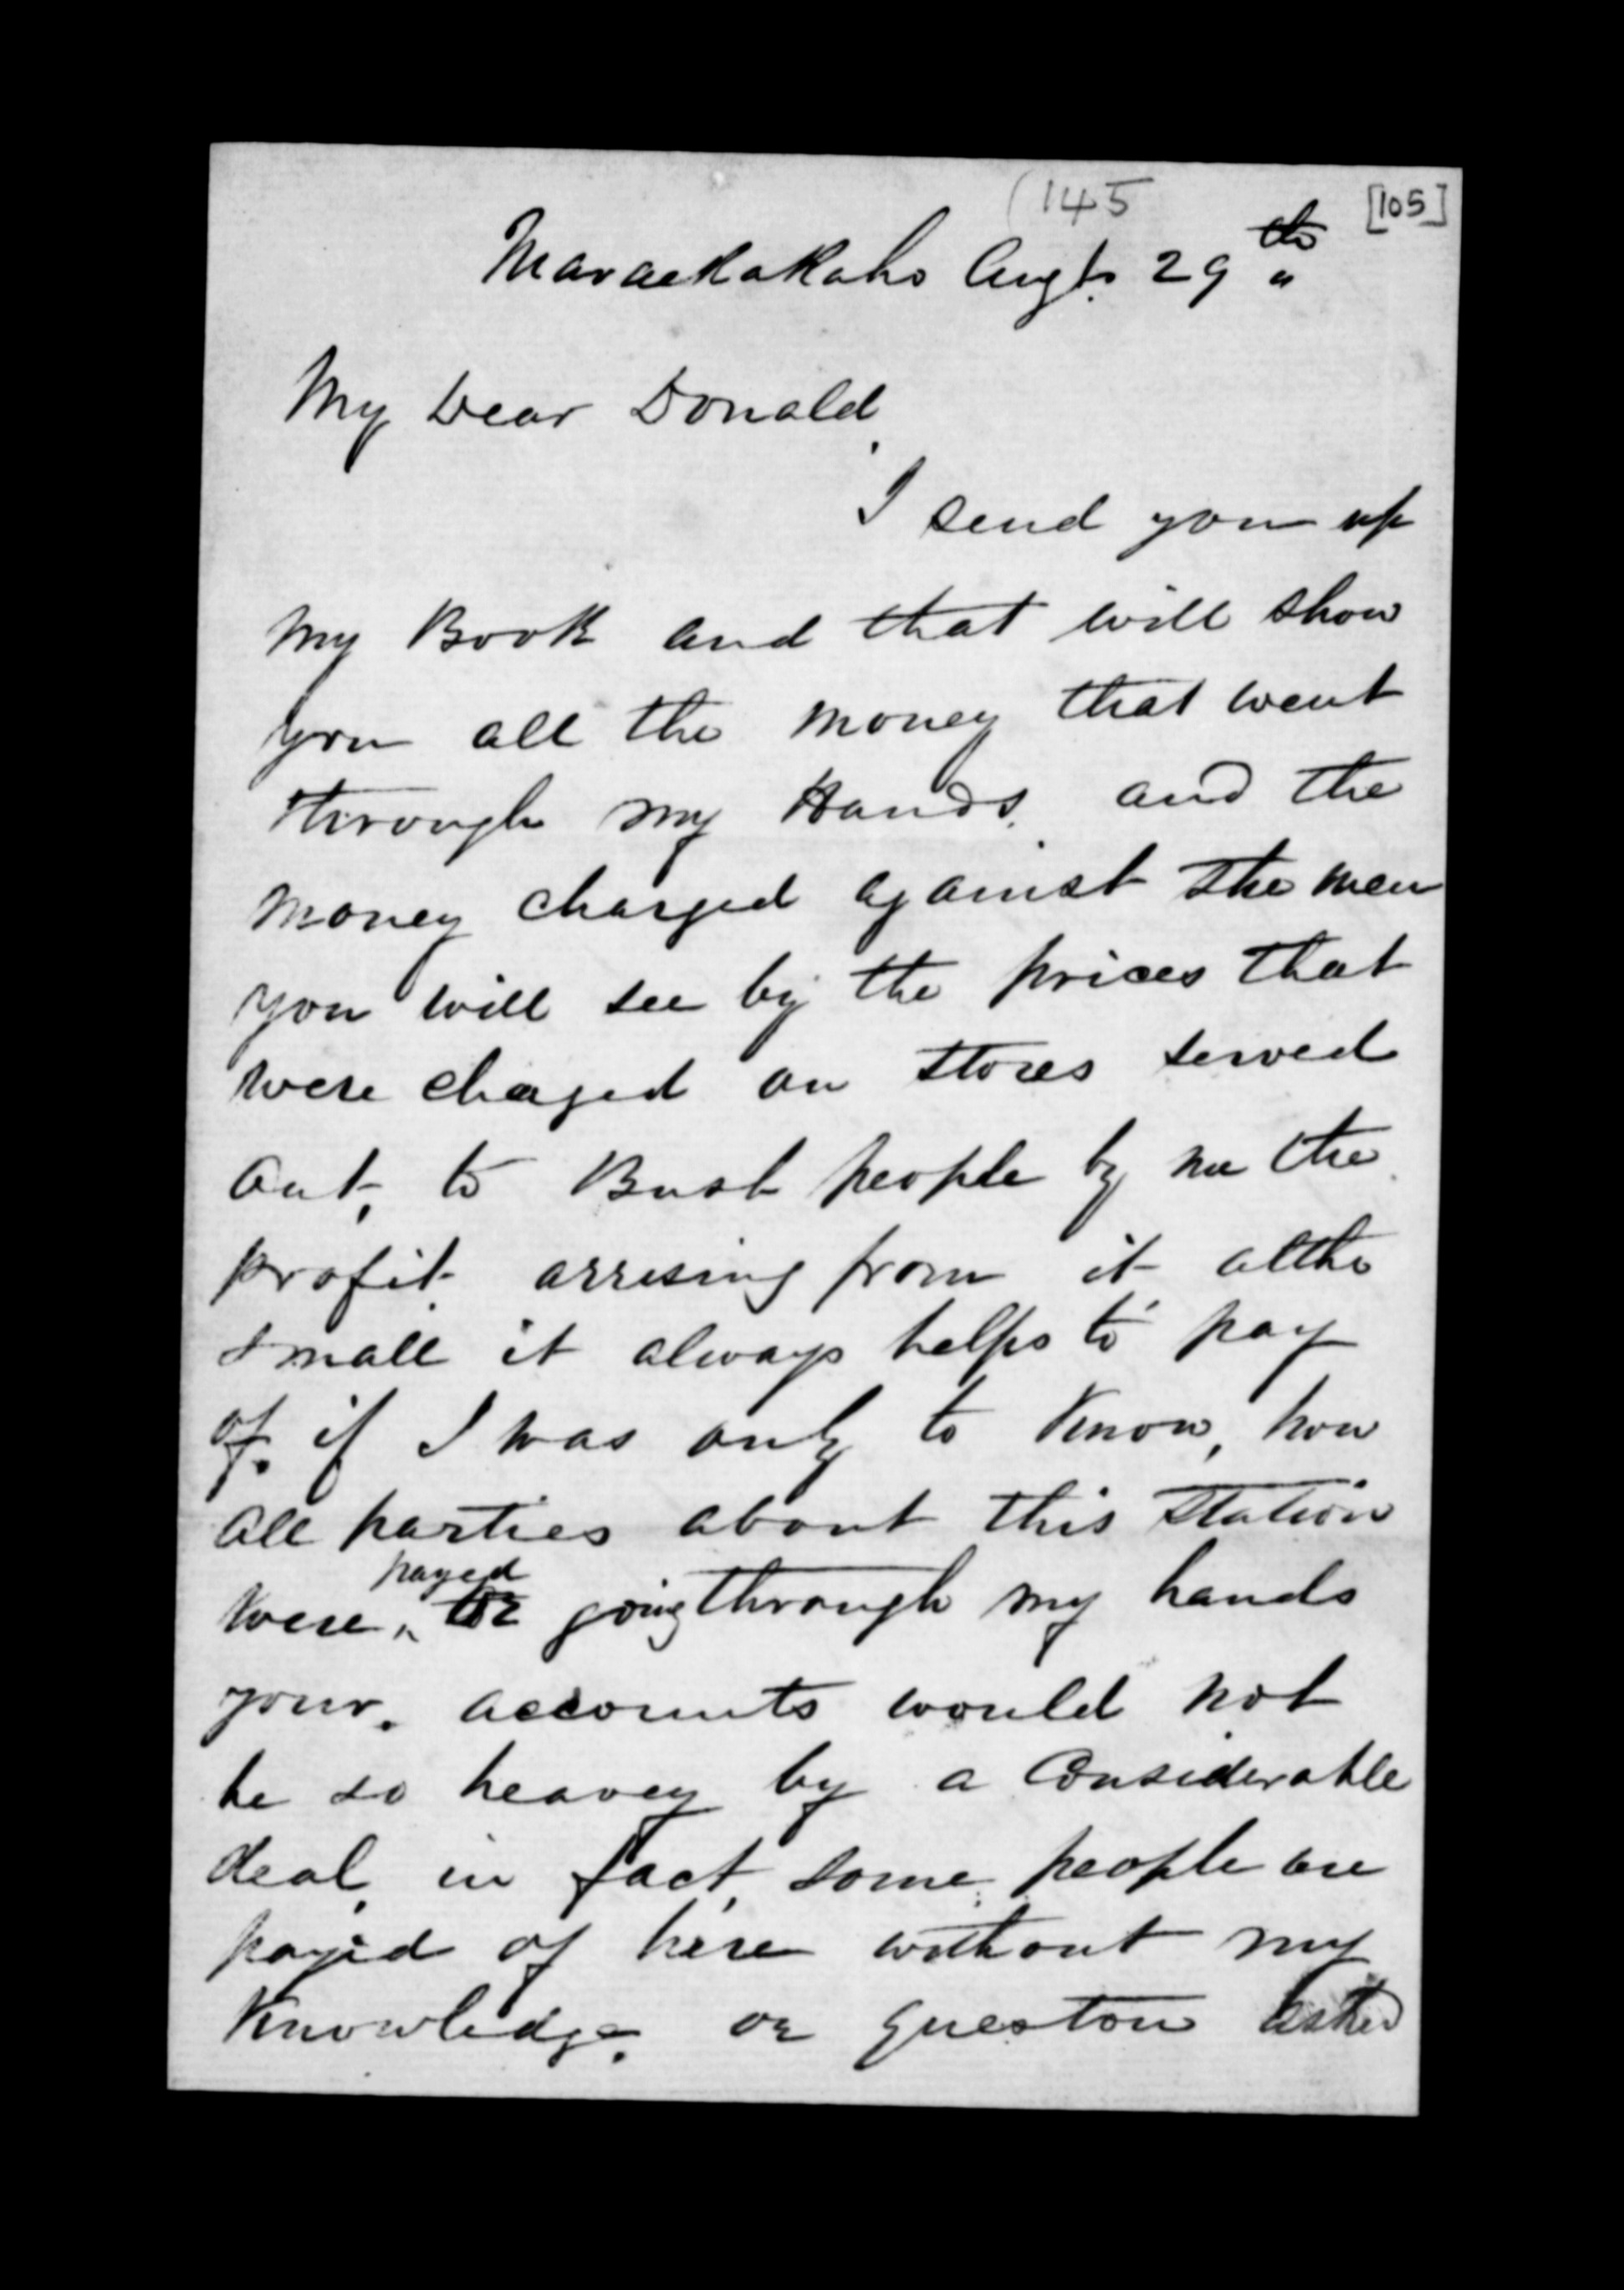 (145 [105]
Maraekakaho Augt. 29th
My Dear Donald,
I send you up
my Book and that will show
you all the money that went
through my Hands, and the
money charged against the men
you will see by the prices that
were charged on stores served
out, to Bush people by me the
profit arresing from it altho
small it always helps to pay
of. if I was only to know, how
all parties about this station
payed
were, or going through my hands
your. accounts would not
be so heavey by a Considerable
deal, in fact, some people are
payed of here without my
Knowledge. or queston asked